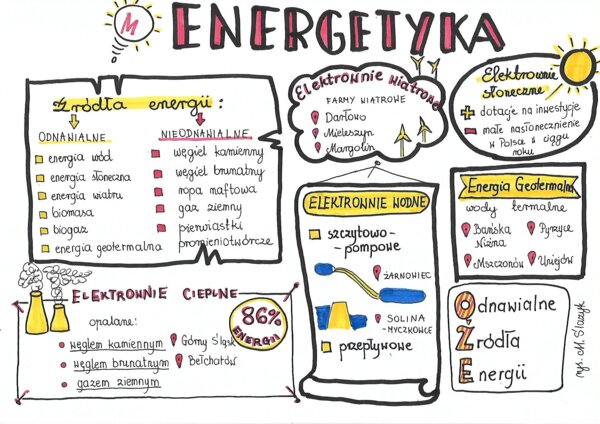 M
ENERGETYKA
Źródła energii:
ODNAWIALNE
energia wód
energia słoneczna
energia wiatru
biomasa
biogaz
energia geotermalna
NIEODNAWIALNE
węgiel kamienny
węgiel brunatny
ropa naftowa
gaz ziemny
pierwiastki
promieniotwórcze
Elektrownie wiatrowe
FARMY WIATROWE
Darłowo
Mieleszyn
Margonin
Elektrownie
słoneczne
+ dotacje na inwestycje
- małe nasłonecznienie
w Polsce w ciągu
roku
ELEKTROWNIE WODNE
szczytowo-
-pompowe
ŻARNOWIEC
SOLINA
-MYCZKOWCE
przepływowe
Energia Geotermalna
wody termalne
Bańska
Niżna
Mszczonów
Pyrzyce
Uniejów
ELEKTROWNIE CIEPLNE
86%
ENERGII
opalane:
węglem kamiennym
Górny Śląsk
węglem brunatnym
Bełchatów
gazem ziemnym
Odnawialne
Źródła
Energii
rys. M. Ślazyk